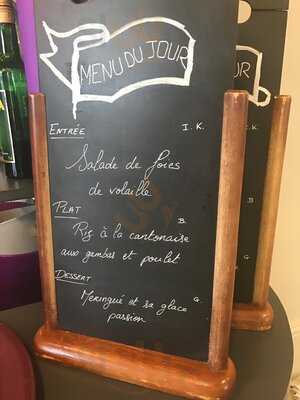 MENU DU JOUR
ENTRÉE I. K.
Salade de foies
de volaille
PLAT B.
Riz à la cantonaise
aux gambas et poulet
DESSERT
Meringué et sa glace G.
passion
UR